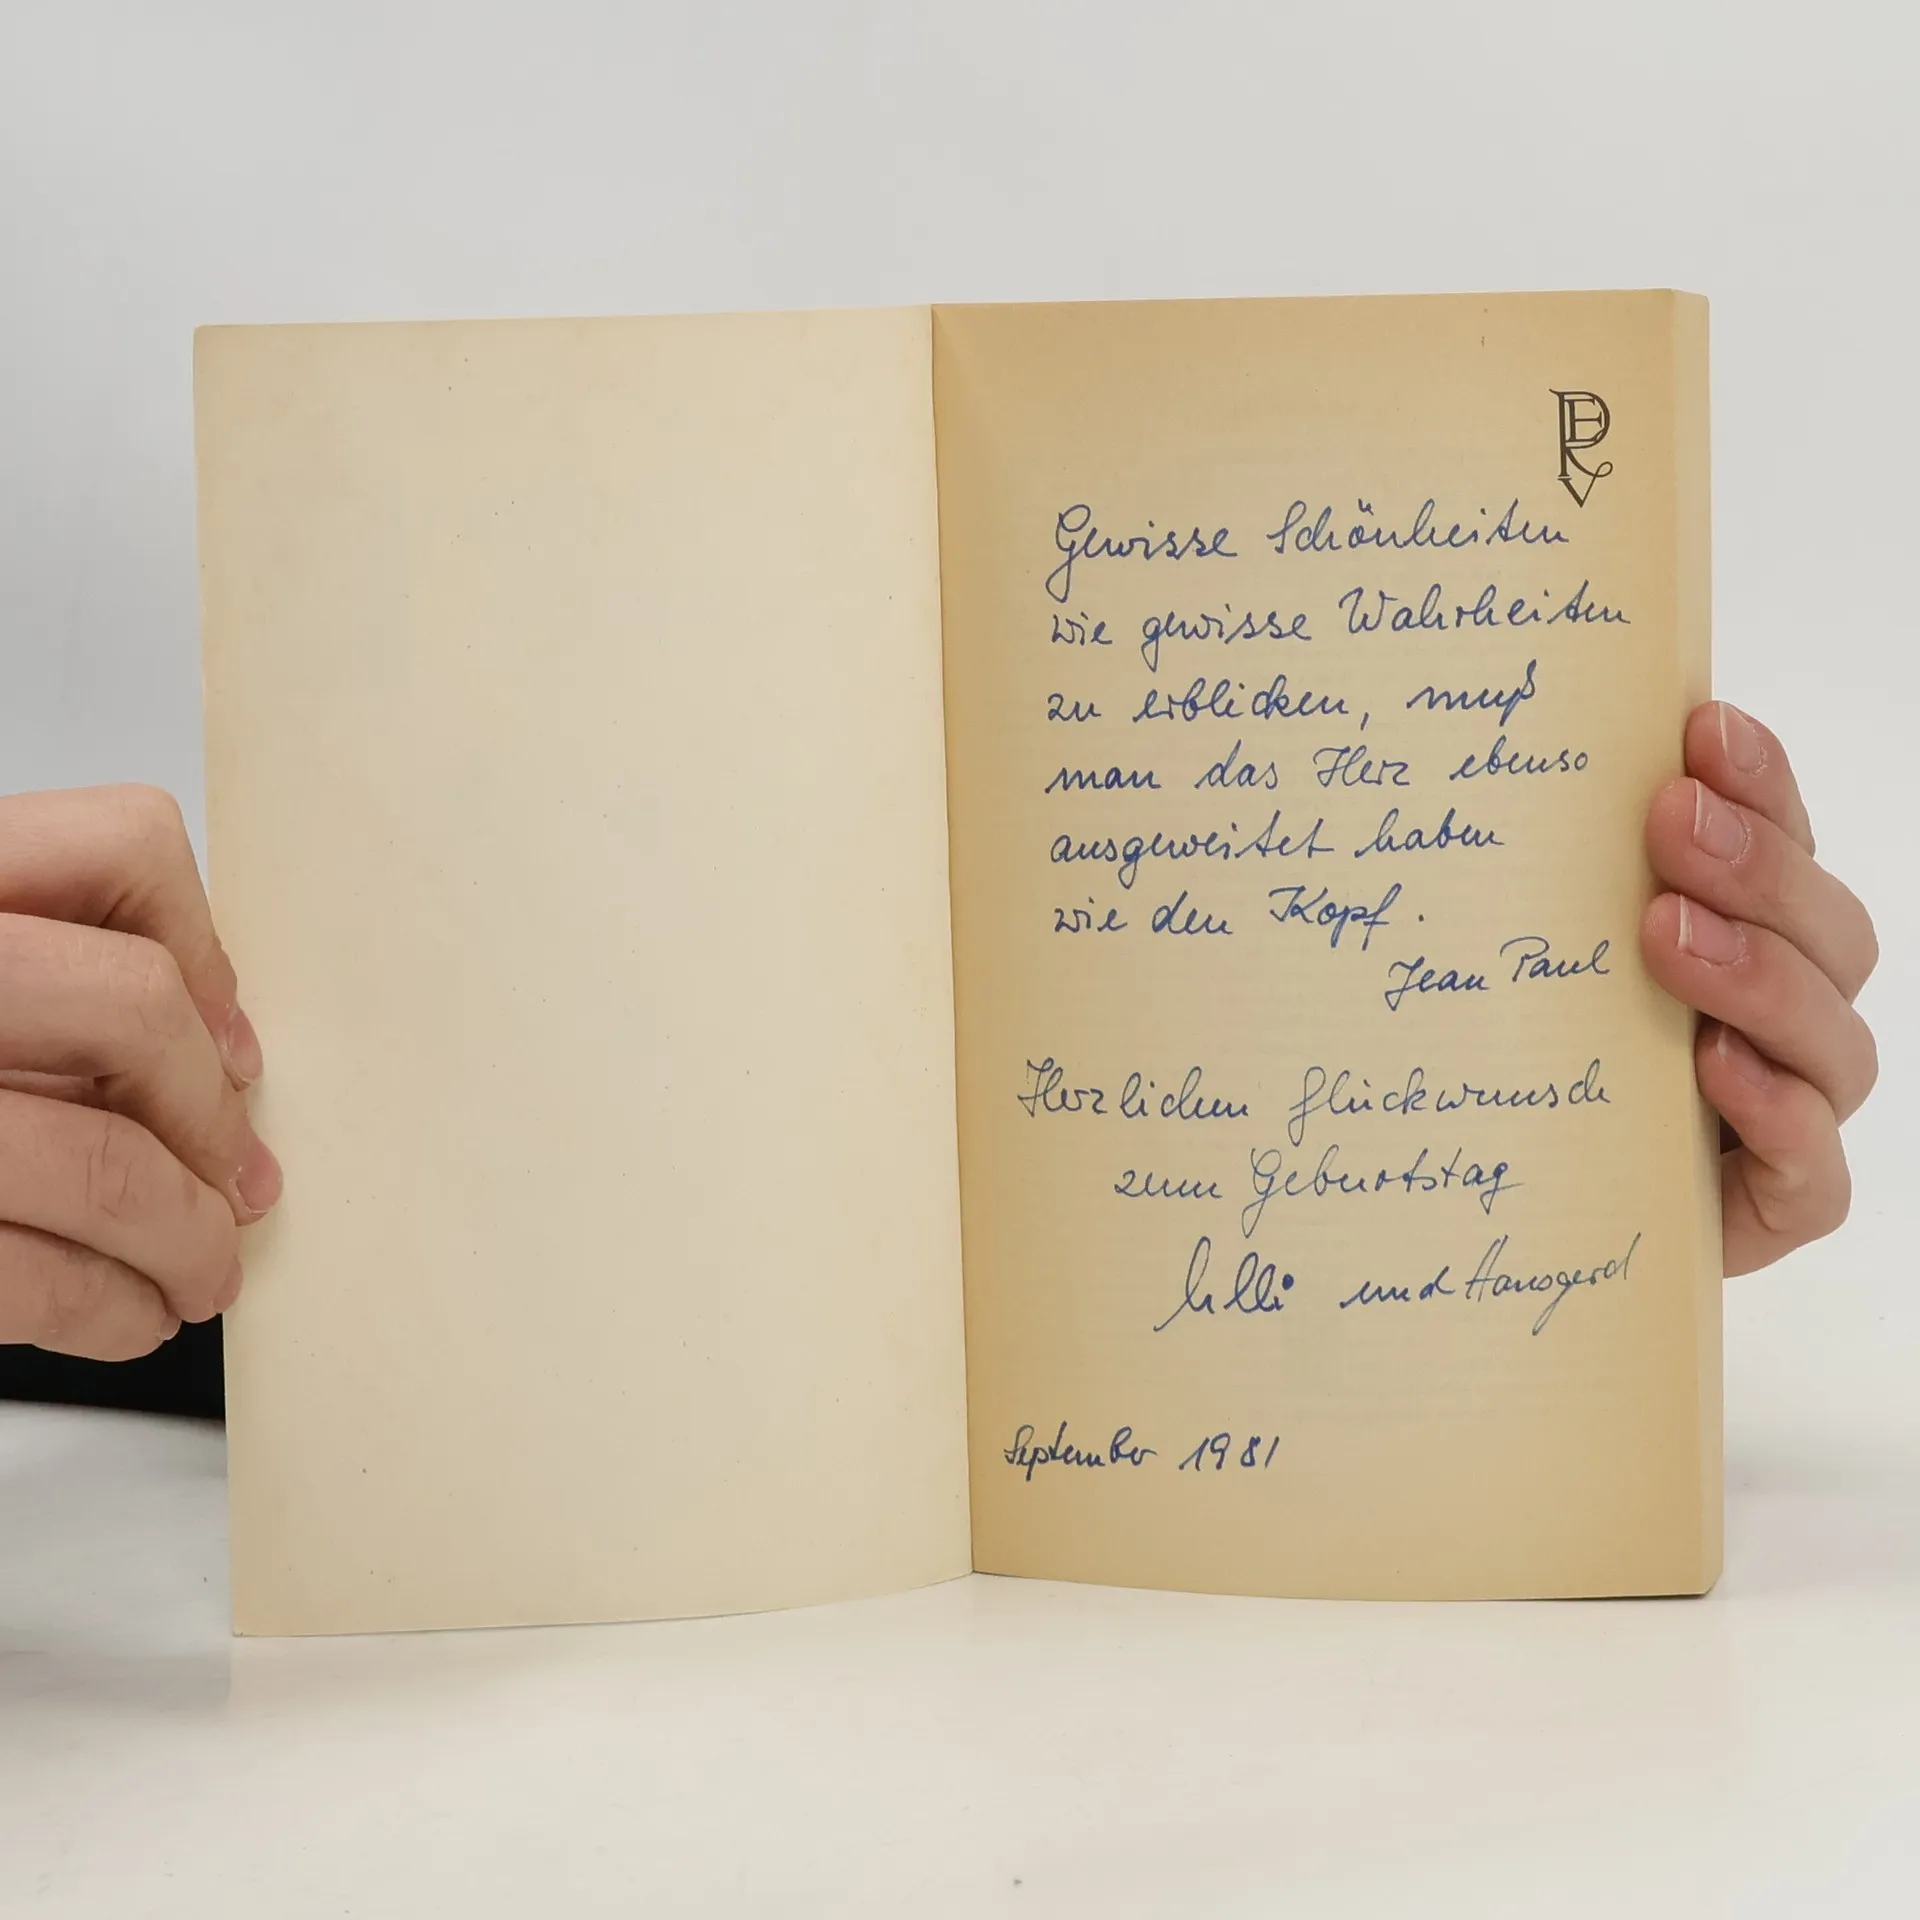 Gewisse Schönheiten
wie gewisse Wahrheiten
zu erblicken, muß
man das Herz ebenso
ausgeweitet haben
wie den Kopf.
Jean Paul
Herzlichen Glückwunsch
zum Geburtstag
und Hansgerd
September 1981